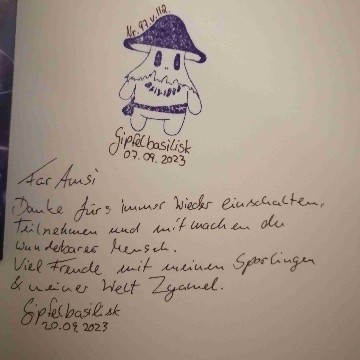 Nr. 97 v. 112
Gipfelbasilisk
07.09.2023
Für Amsi
Danke fürs immer wieder einschalten,
Teilnehmen und mitmachen du
wunderbarer Mensch.
Viel Freude mit meinen Sporlingen
& meiner Welt Zyamel.
Gipfelbasilisk
20.09.2023